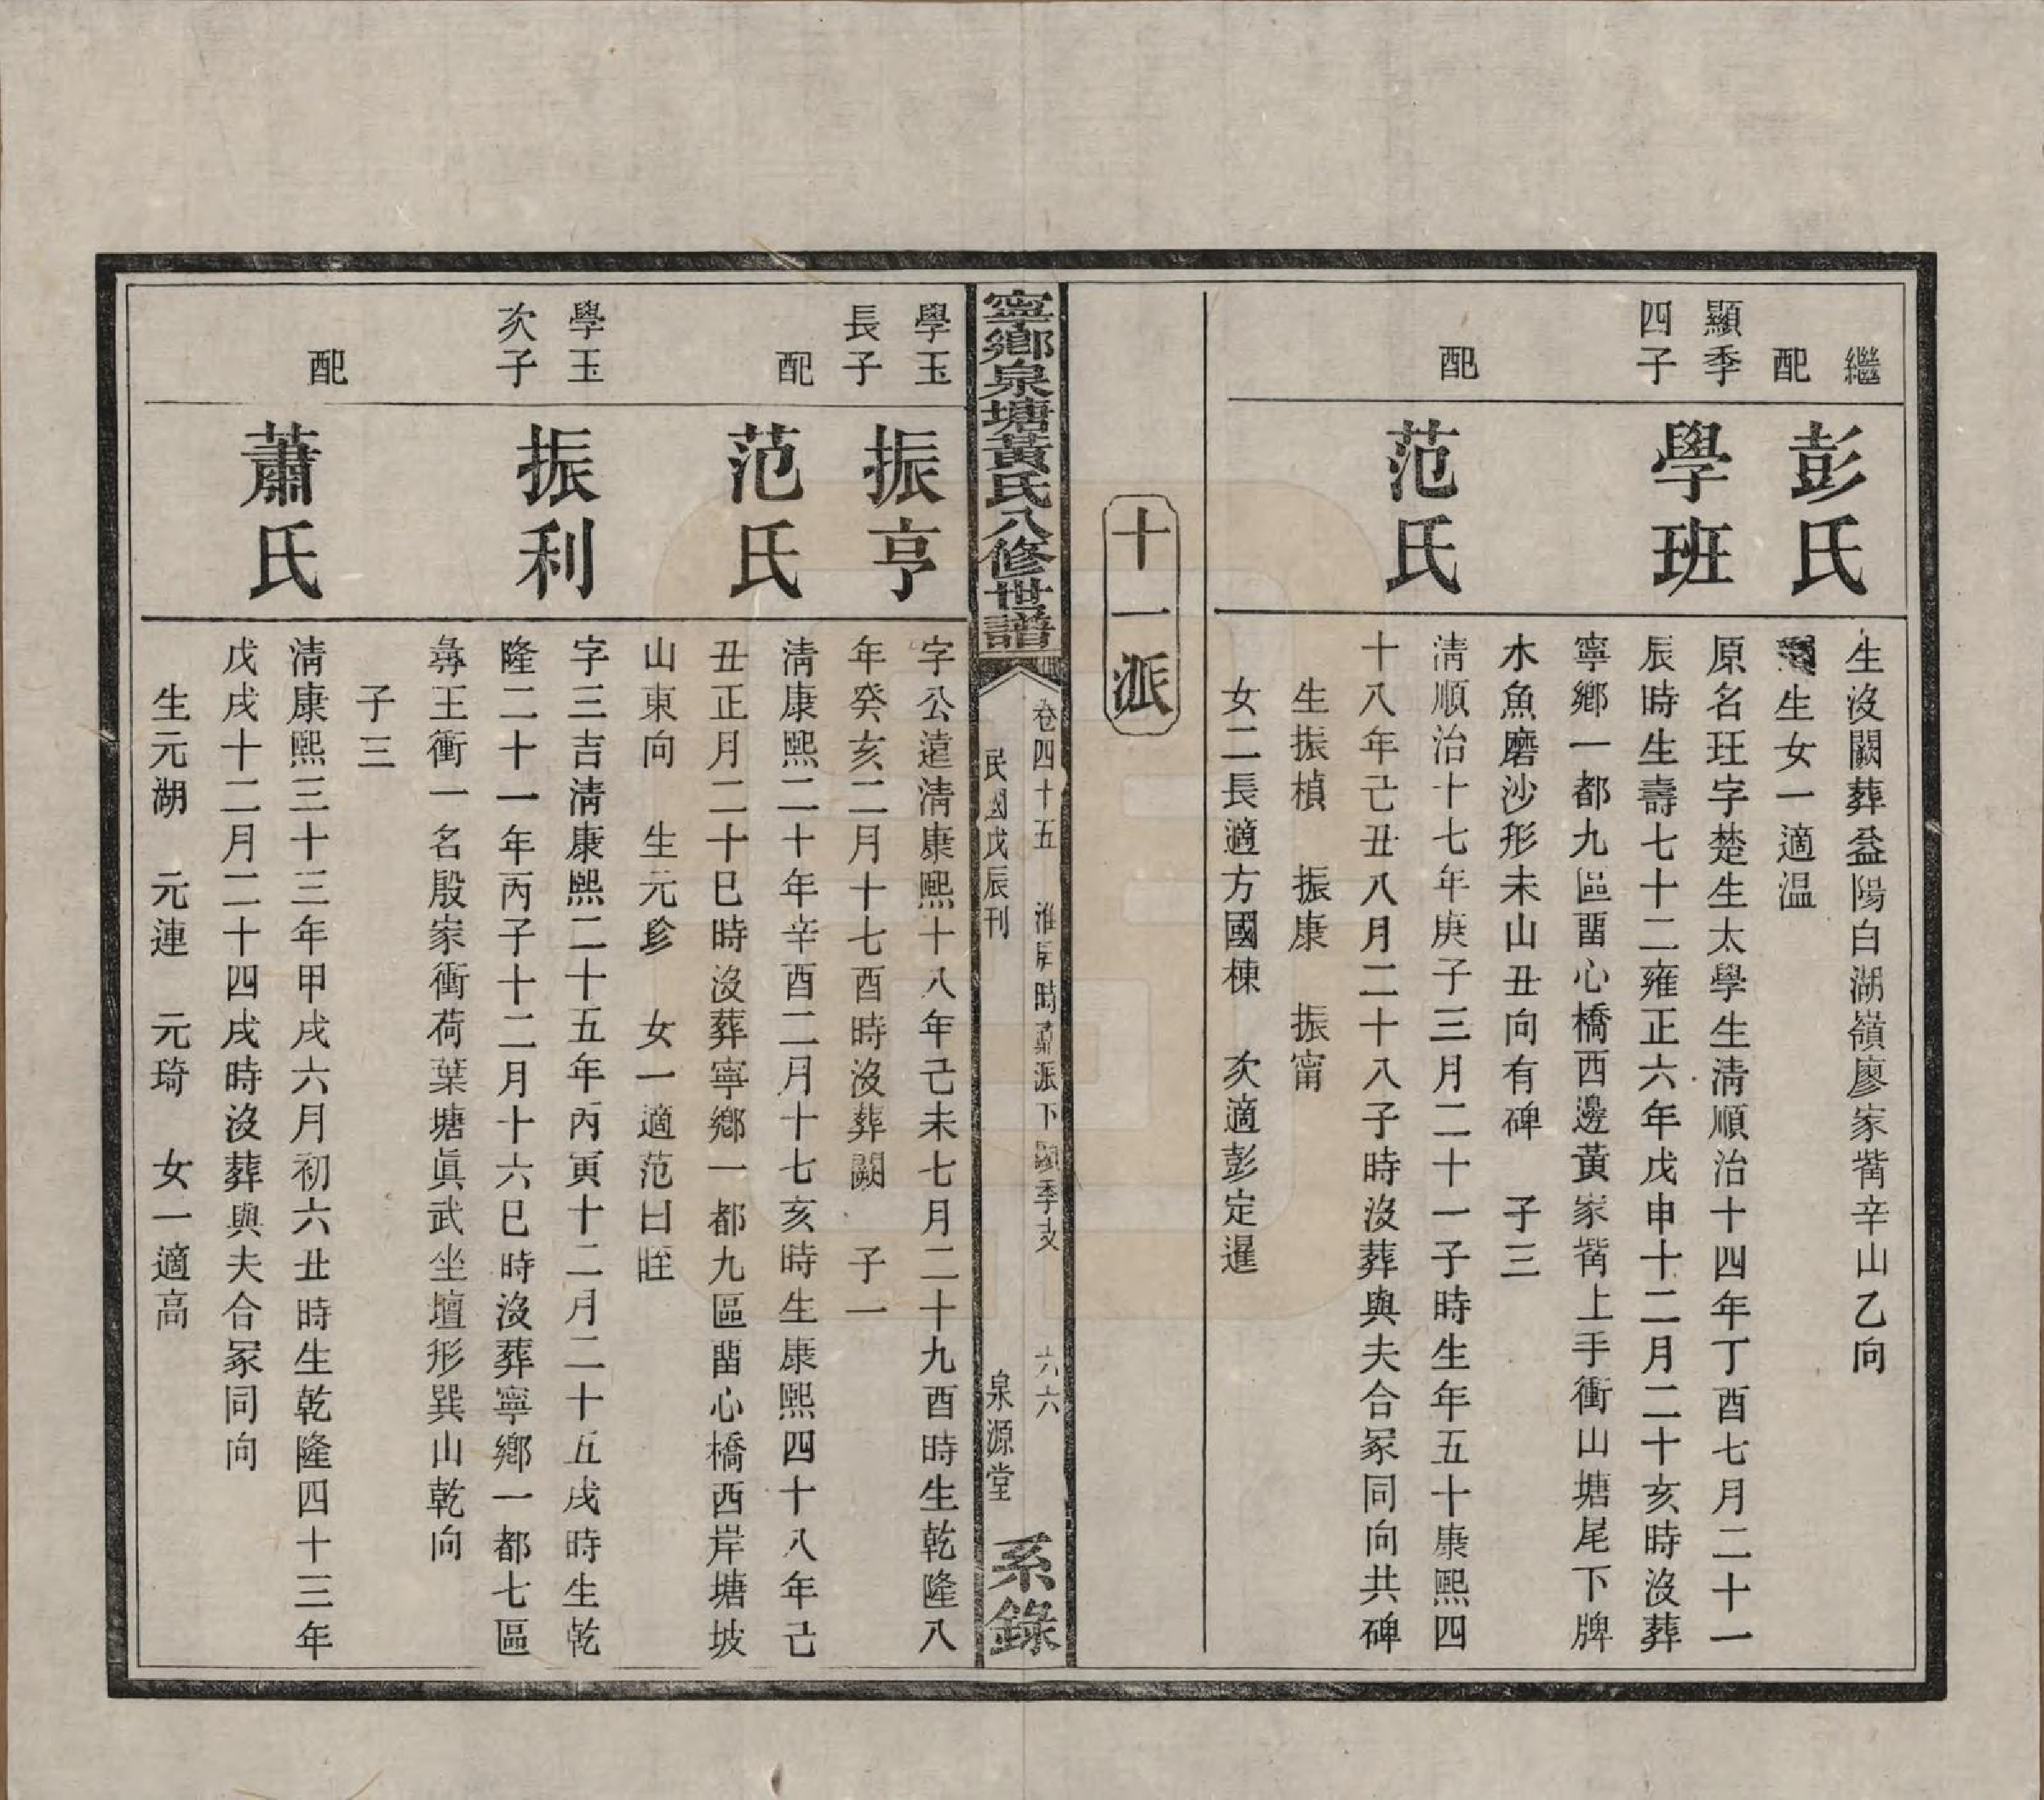 繼
配
彭氏
生沒闕葬益陽白湖嶺廖家觜辛山乙向
生女一適温
顯季
四子
學班
原名玨字楚生太學生淸順治十四年丁酉七月二十一
辰時生壽七十二雍正六年戊申十二月二十亥時沒葬
寧鄉一都九區畱心橋西邊黃家觜上手衝山塘尾下牌
木魚磨沙形未山丑向有碑 子三
配
范氏
淸順治十七年庚子三月二十一子時生年五十康熙四
十八年己丑八月二十八子時沒葬與夫合冢同向共碑
生振楨 振康 振甯
女二長適方國棟 次適彭定暹
十一派
寧鄉泉塘黃氏八修世譜
卷四十五 淮房時 派下顯季支 六六
民國戊辰刊 泉源堂
系錄
學玉
長子
振亨
字公遠淸康熙十八年己未七月二十九酉時生乾隆八
年癸亥二月十七酉時沒葬闕 子一
配
范氏
淸康熙二十年辛酉二月十七亥時生康熙四十八年己
丑正月二十巳時沒葬寧鄉一都九區畱心橋西岸塘坡
山東向 生元珍 女一適范曰晊
學玉
次子
振利
字三吉淸康熙二十五年丙寅十二月二十五戌時生乾
隆二十一年丙子十二月十六巳時沒葬寧鄉一都七區
彝王衝一名殷家衝荷葉塘眞武坐壇形巽山乾向
子三
配
蕭氏
淸康熙三十三年甲戌六月初六丑時生乾隆四十三年
戊戌十二月二十四戌時沒葬與夫合冢同向
生元湖 元連 元琦 女一適高